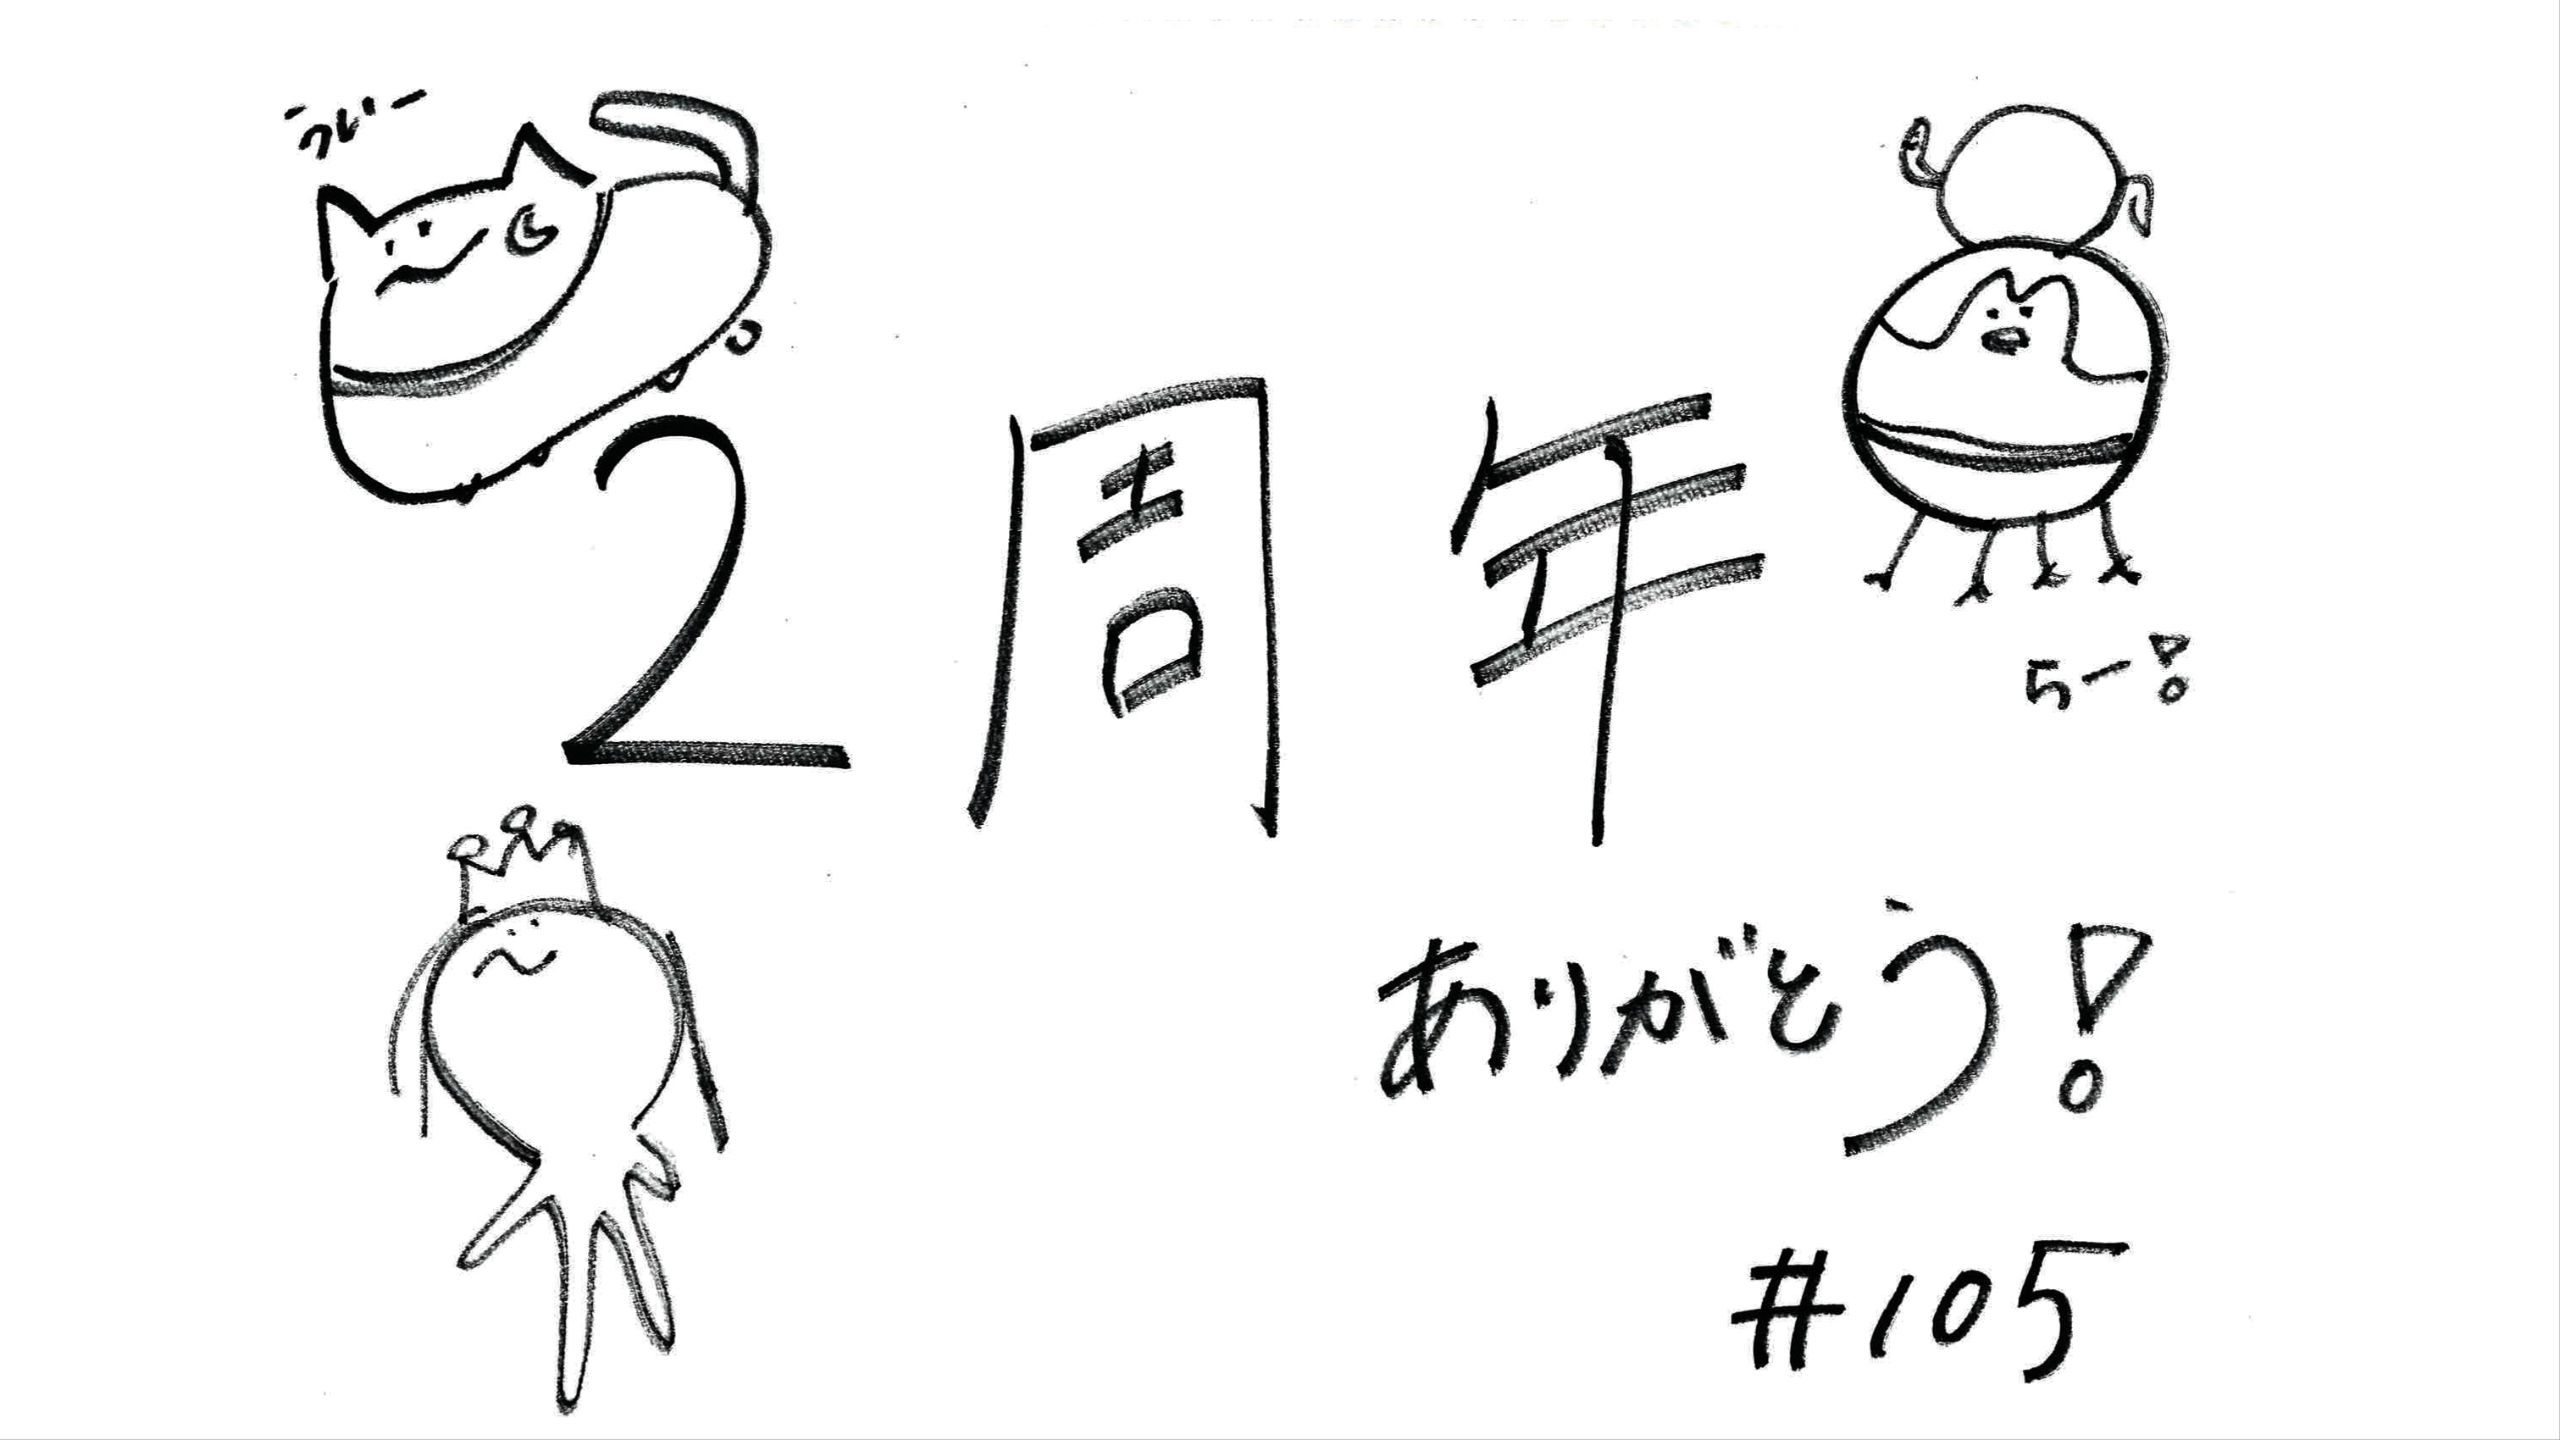 うぃー
2周年
らー!
ありがとう!
#105